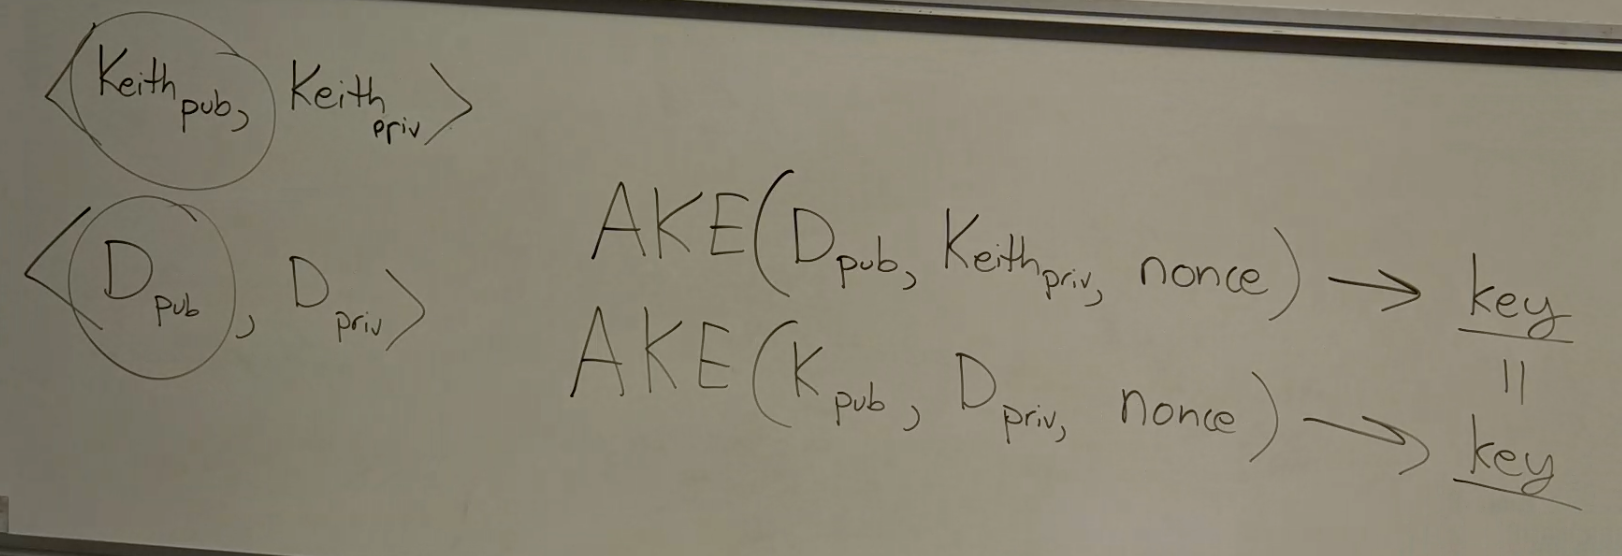 <Keith pub, Keith priv>
<D pub, D priv>
AKE(D pub, Keith priv, nonce) → key
=
AKE(K pub, D priv, nonce) → key